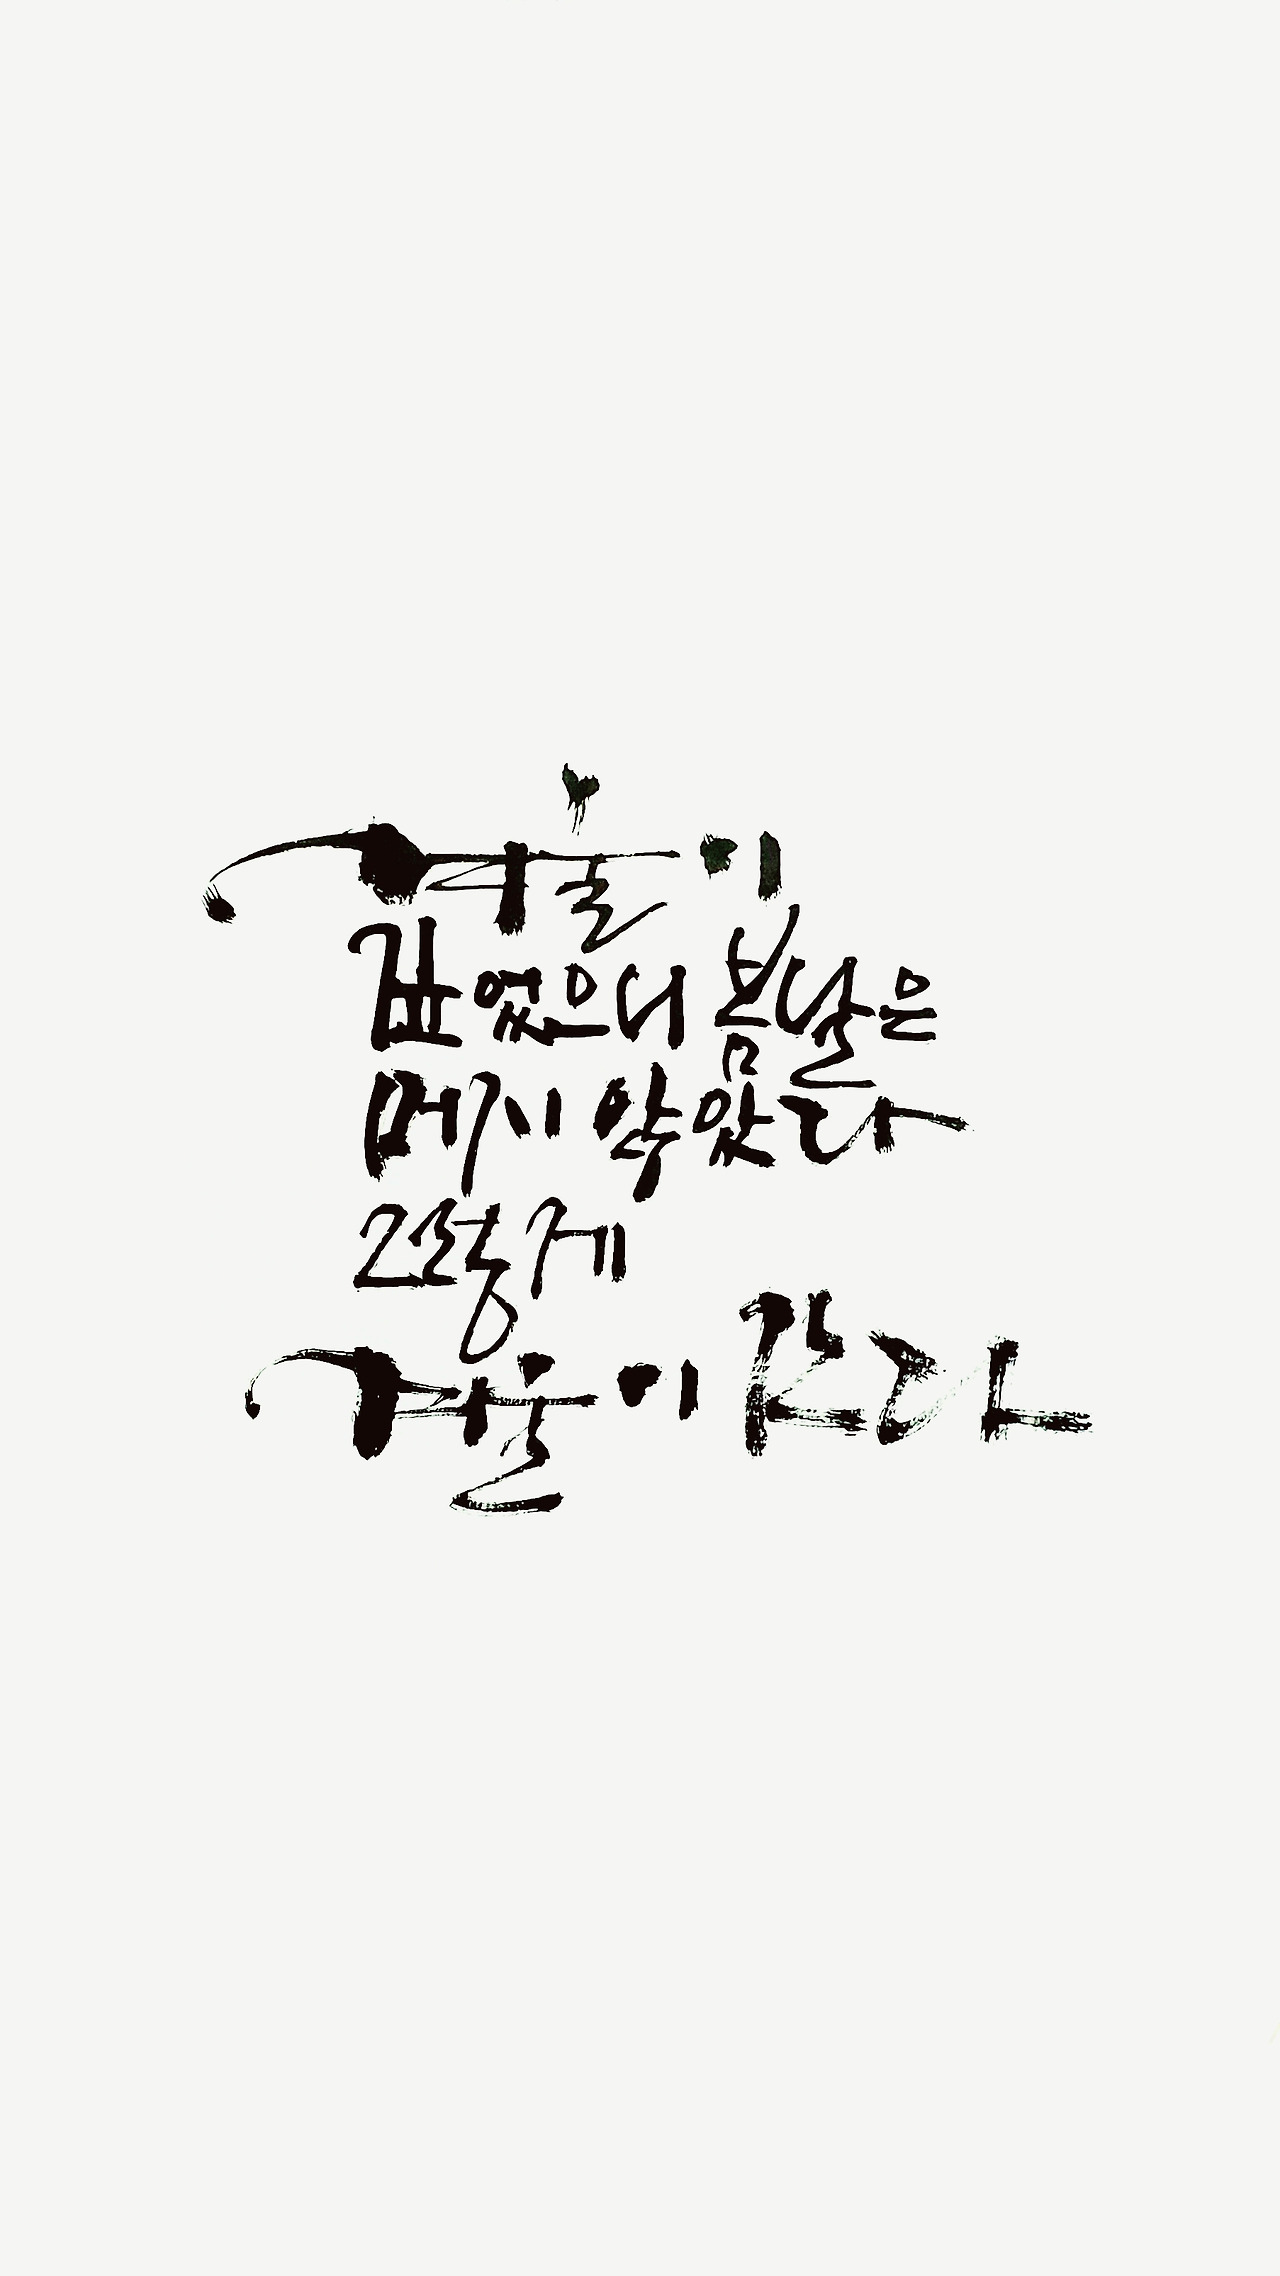 겨울이
깊었으니 봄날은
머지 않았다
그렇게
겨울이 간다